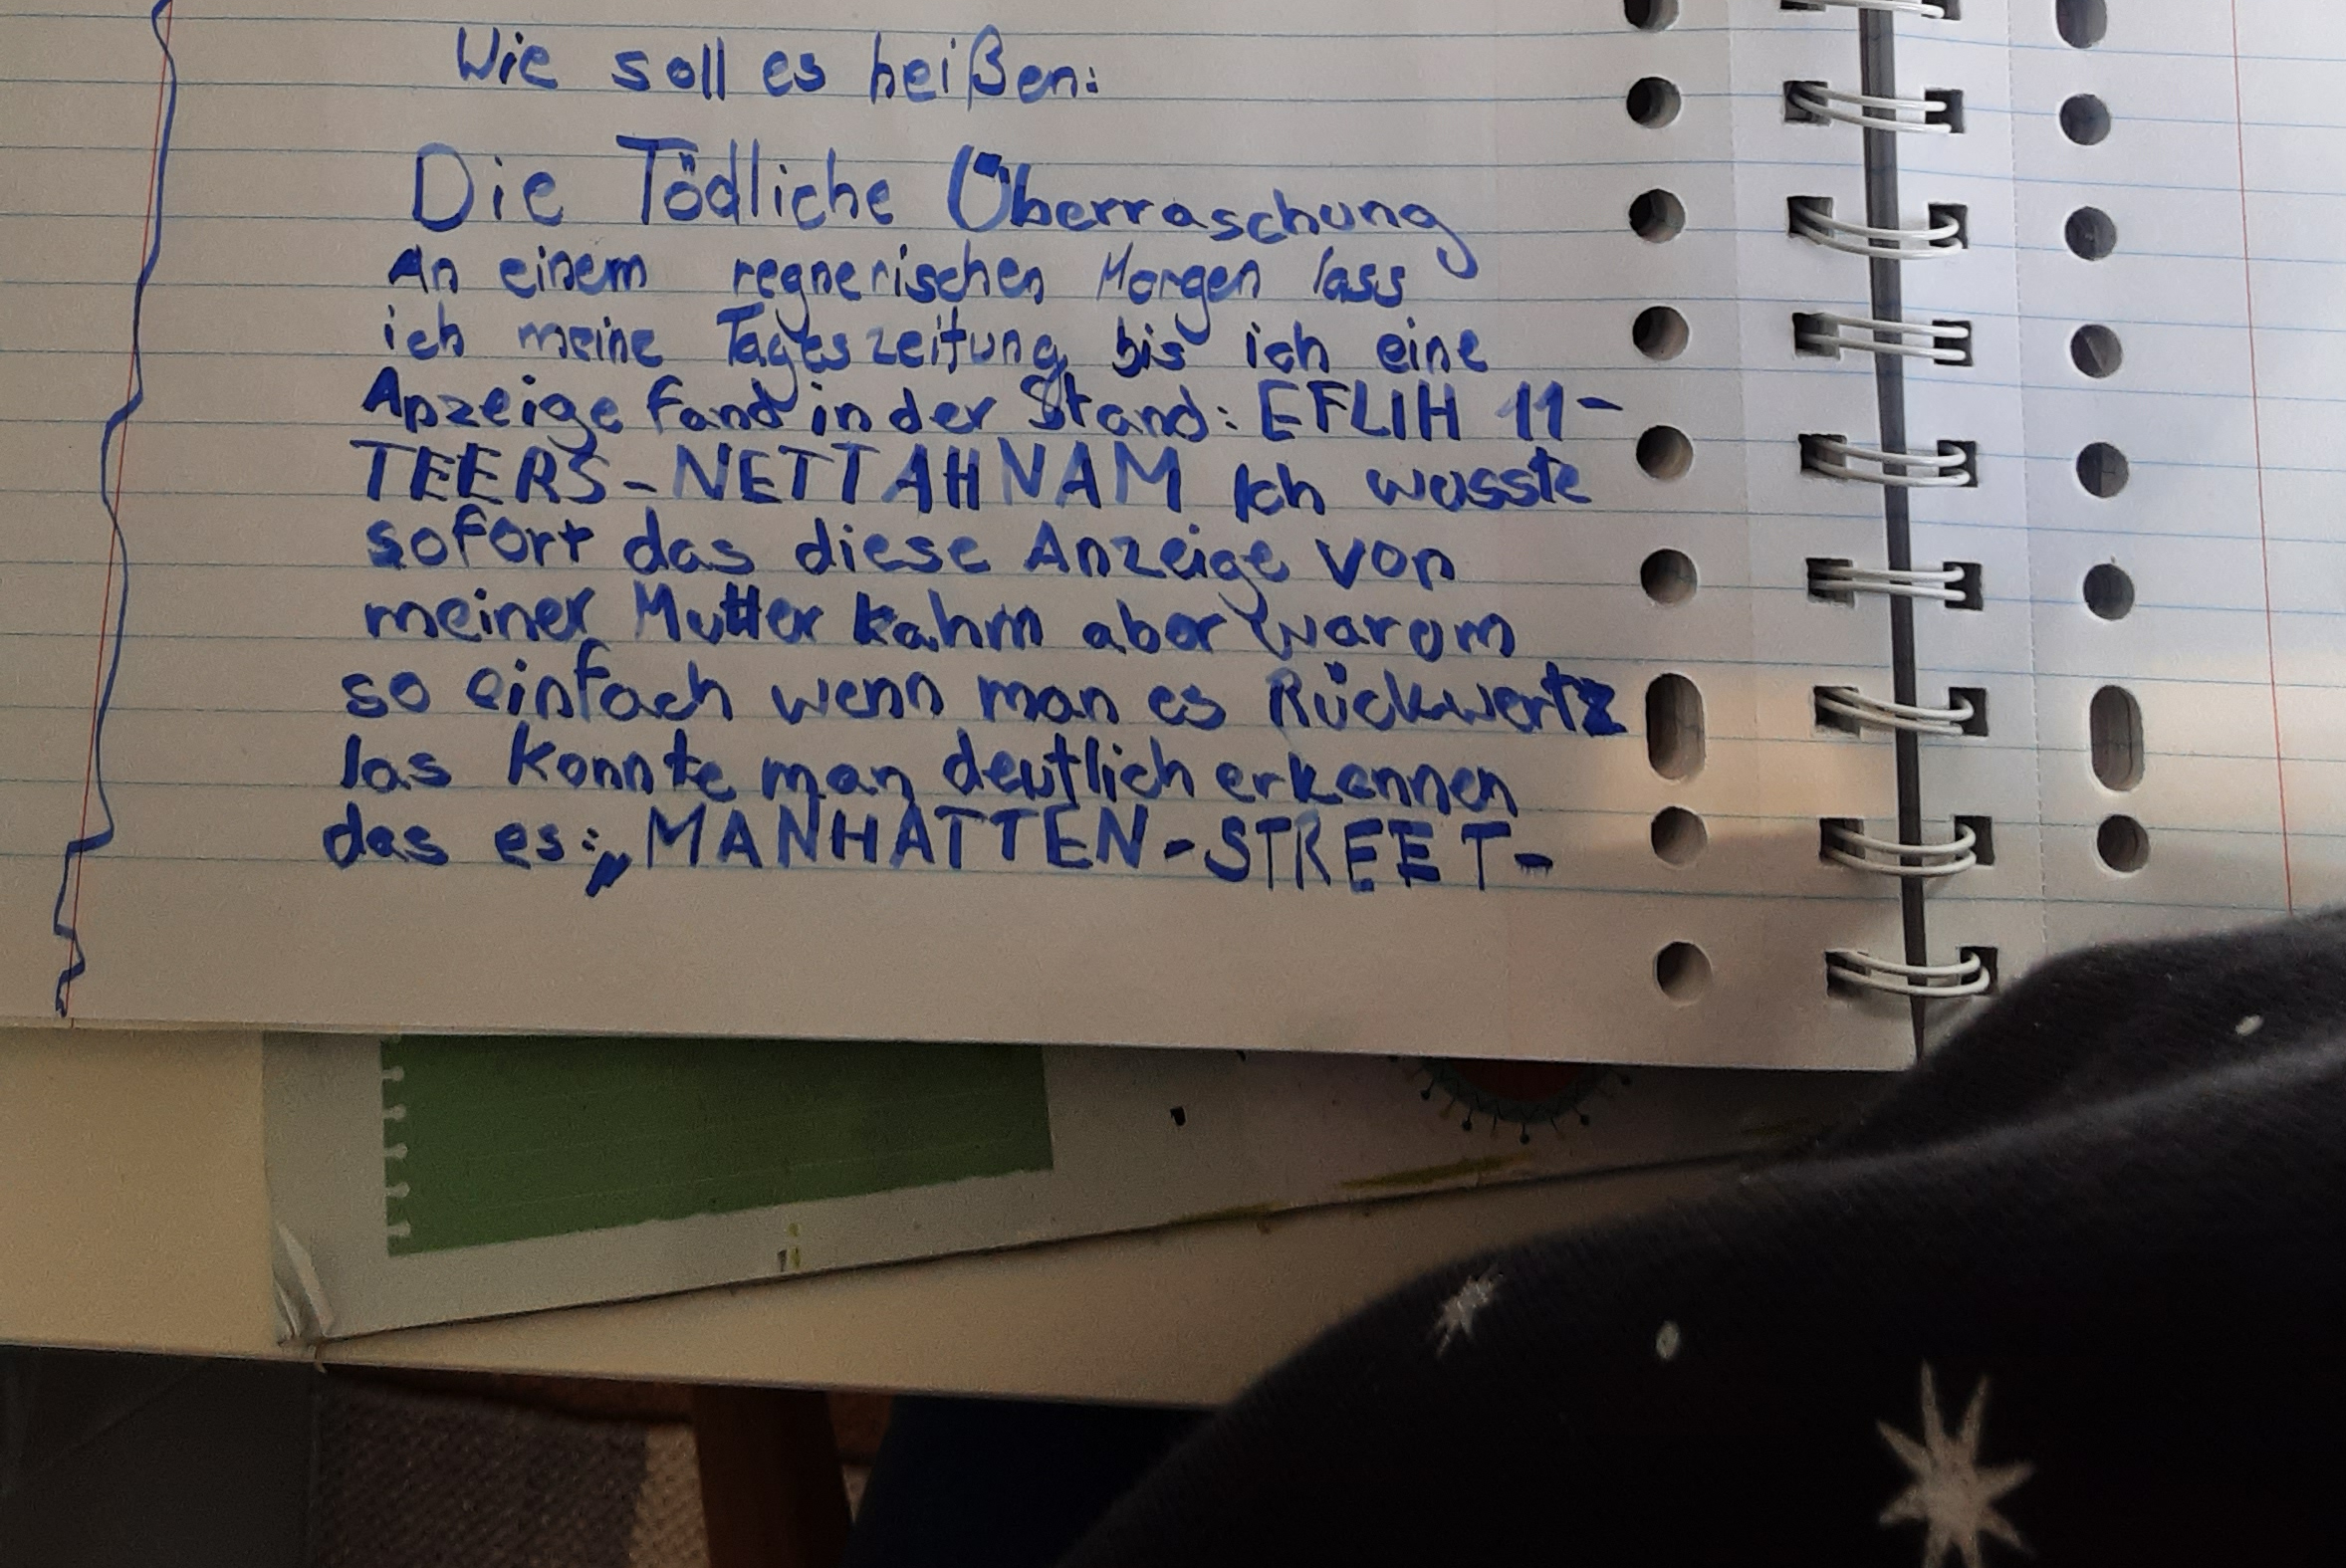 Wie soll es heißen:
Die Tödliche Überraschung
An einem regnerischen Morgen lass
ich meine Tageszeitung bis ich eine
Anzeige fand in der Stand: EFLIH 11-
TEERS-NETTAHNAM Ich wusste
sofort das diese Anzeige von
meiner Mutter kahm aber warum
so einfach wenn man es Rückwertz
las konnte man deutlich erkennen
das es: „MANHATTEN-STREET-